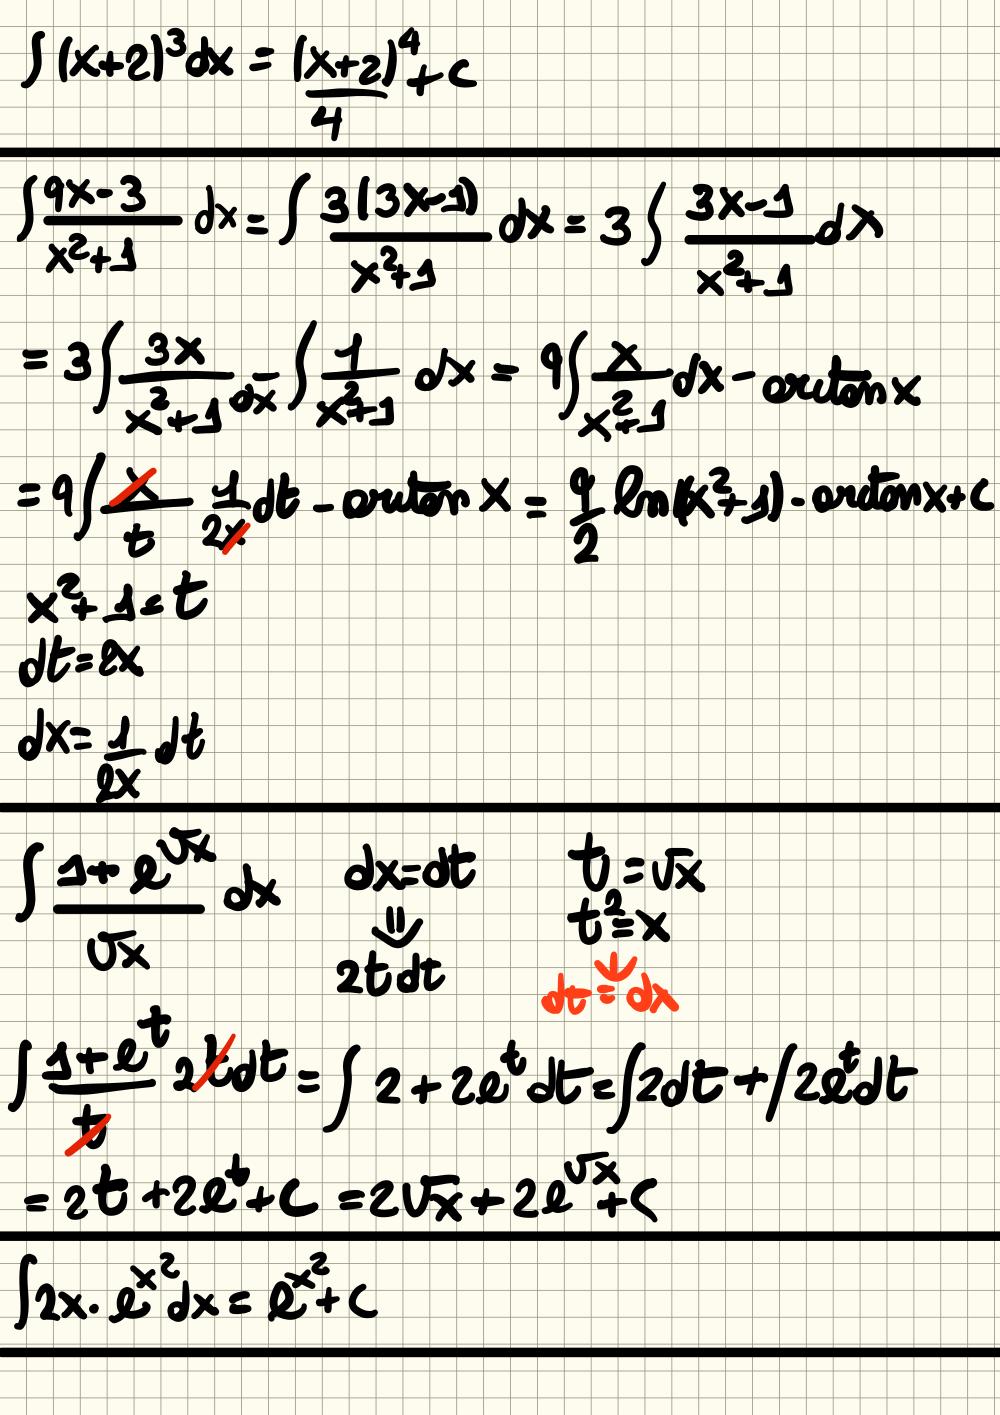 ∫ (x+2)³dx = (x+2)⁴/4 + c
∫ (9x-3)/(x²+1) dx = ∫ 3(3x-1)/(x²+1) dx = 3 ∫ (3x-1)/(x²+1) dx
= 3 ∫ 3x/(x²+1) dx - ∫ 1/(x²+1) dx = 9 ∫ x/(x²+1) dx - arctan x
= 9 ∫ x/t 1/2x dt - arctan x = 9/2 ln(x²+1) - arctan x + c
x²+1 = t
dt = 2x
dx = 1/2x dt
∫ (1+e^√x)/√x dx dx = dt t = √x
⇓ t² = x
2t dt ↓
dt = dx
∫ (1+e^t)/t 2t dt = ∫ 2 + 2e^t dt = ∫ 2dt + ∫ 2e^t dt
= 2t + 2e^t + c = 2√x + 2e^√x + c
∫ 2x · e^x² dx = e^x² + c